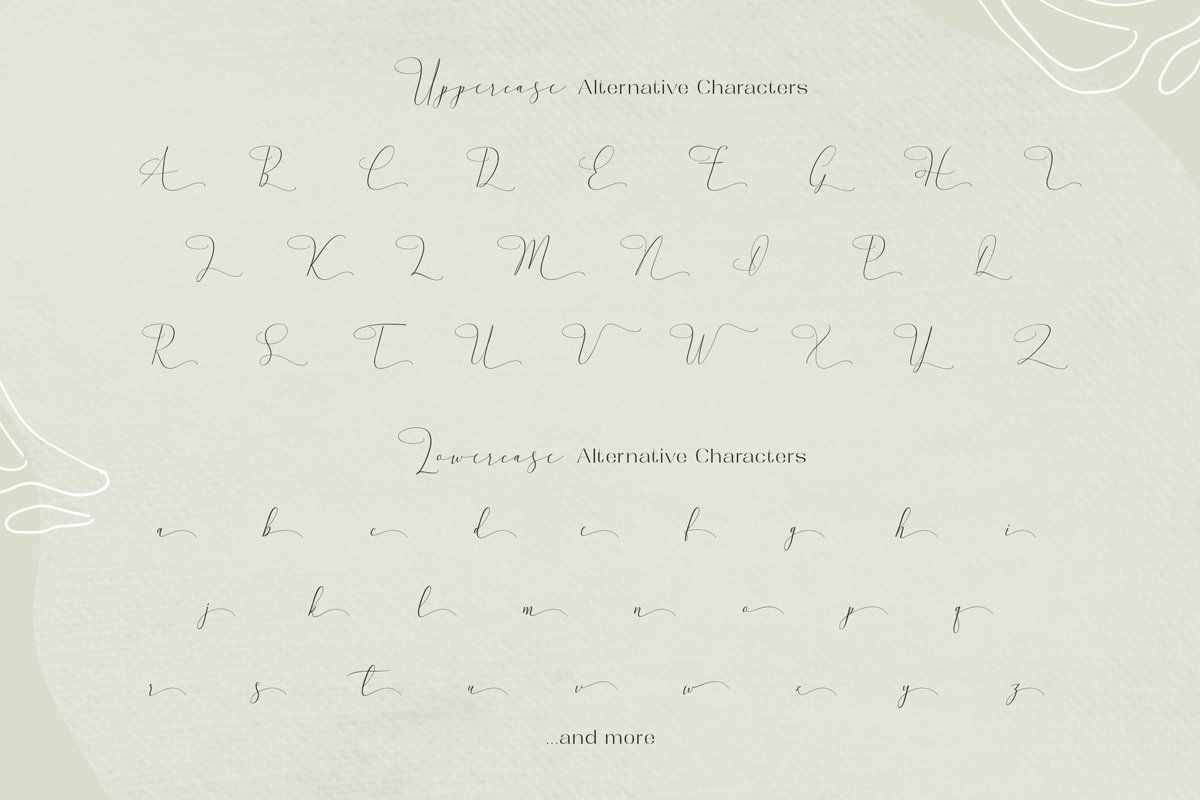 Uppercase Alternative Characters
A B C D E F G H I
J K L M N O P Q
R S T U V W X Y Z
Lowercase Alternative Characters
a b c d e f g h i
j k l m n o p q
r s t u v w x y z
...and more